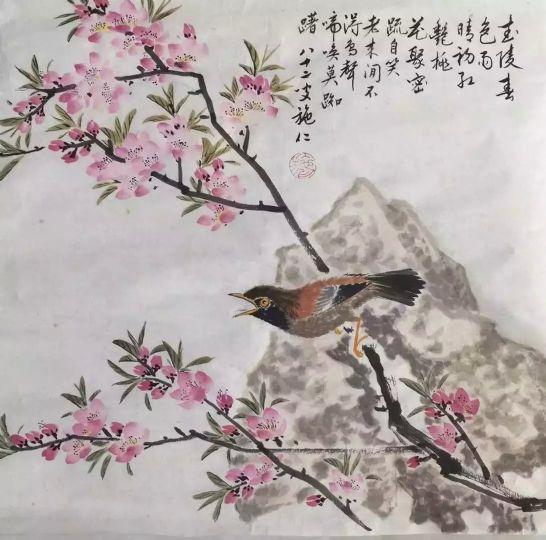 武陵春
色雨
晴初红
艷桃
花聚密
疏自笑
老来闲不
得鸟声
啼唤莫踟
躇 八十二叟施仁